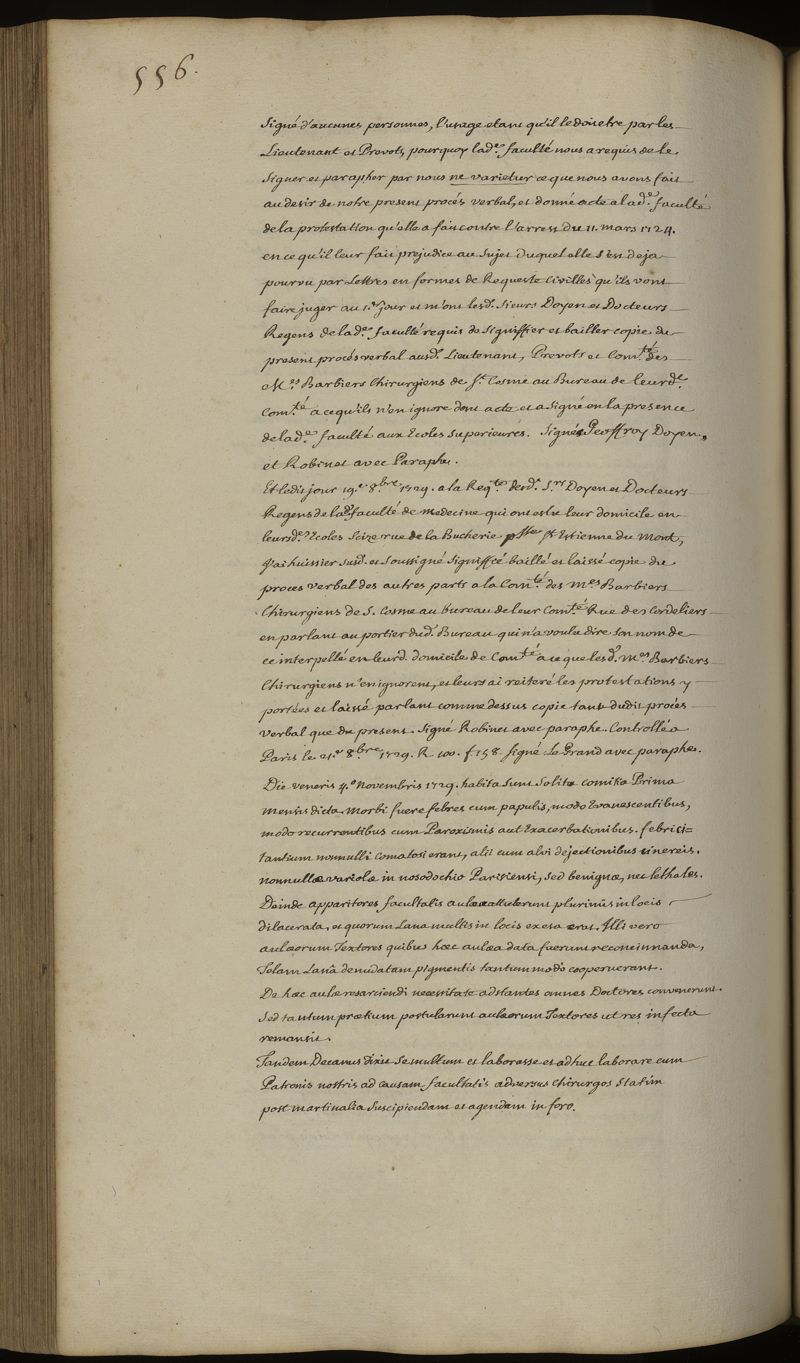 556.
signé d'aucunes personnes, l'usage etant qu'il le doit etre par les
Lieutenant et Prevots, pourquoy lad.e faculté nous a requis de le
signer et parapher par nous ne varietur ce que nous avons fait
au desir de notre present procés verbal, et donné acte a lad.e faculté
de la protestation qu'elle a fait contre l'arrest du 11. mars 1724.
en ce qu'il leur fait prejudice au sujet duquel elle s'en deja
pourvu par Lettres en formes de Requeste Civilles qu'ils vont
faire juger au 1.er jour et m'ont lesd. Sieurs Doyen et Docteurs
Regens de lad.e faculté requis de signiffier et bailler copie du
present procés verbal ausd. Lieutenant, Prevots et Com.té des
M.es Barbiers Chirurgiens de S.t Cosme au Bureau de leurd.e
Com.té a ce qu'ils n'en ignore dont acte et a signé en la presence
de lad.e faculté aux Ecoles superieures. Signés Geoffroy Doyen,
et Robinet avec Paraphe.
Et ledit jour 19.e 8.bre 1729. a la Req.te desd. S.rs Doyen et Docteurs
Regens de lad.e faculté de medecine qui ont eslu leur domicile en
leursd.e Ecoles scize rue de la Bucherie p.sse S.t Estienne du Mont,
J'ai huissier susd. et soussigné signiffié baillé et laissé copie du
proces verbal des autres parts a la Com.té des M.es Barbiers
Chirurgiens de S. Cosme au bureau de leur Com.té Rue des Cordeliers
en parlant au portier dud. Bureau qui n'a voulu dire son nom de
ce interpellé en leurd. domicile de Com.té a ce que lesd. M.es Barbiers
Chirurgiens n'en ignorent, et leurs ai reiteré les protestations y
portées et laissé parlant comme dessus copie tant dudit procés
verbal que du present. Signé Robinet avec paraphe. Controllé a
Paris le 21.e 8.bre 1729. R 100. f. 158. signé Le Grand avec paraphe.
Die veneris 4.o Novembris 1729. habita sunt solita comitia Prima
mensis dicta. Morbi fuere febres cum papulis, modo Evanescentibus,
modo recurrentibus cum Paroxismis aut Exacerbationibus. febrici=
tantium nonnulli comatosi erant, alii cum alvi dejectionibus cinereis.
nonnullæ variolæ in nosodochio Parisiensi, sed benignæ, nec lethales.
Deinde apparitores facultatis aulæa attulerunt plurimis in locis
dilacerata, et quorum Lana multis in locis exesa erat. Illi vero
aulæorum Textores quibus hæc aulæa data fuerunt reconcinnanda,
Telam Lanâ denudatam pigmentis tantummodo cooperuerant.
De hac aulæ resarciendi necessitate adstantes omnes Doctores convenerunt.
Sed tantum prætium postularunt aulæorum Textores ut res infecta
remansit.
Tandem Decanus dixit se multum et laborasse et adhuc laborare cum
Patronis nostris ad causam facultatis adversus Chirurgos statim
post martinalia suscipiendam et agendam in foro.